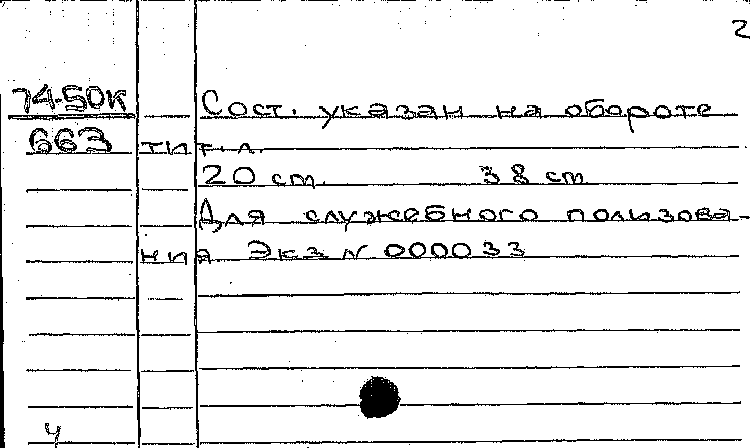 2
74-50К Сост. указан на обороте
663 тит. л.
20 ст. 38 ст
Для служебного пользова-
ния. Экз N 000033
4